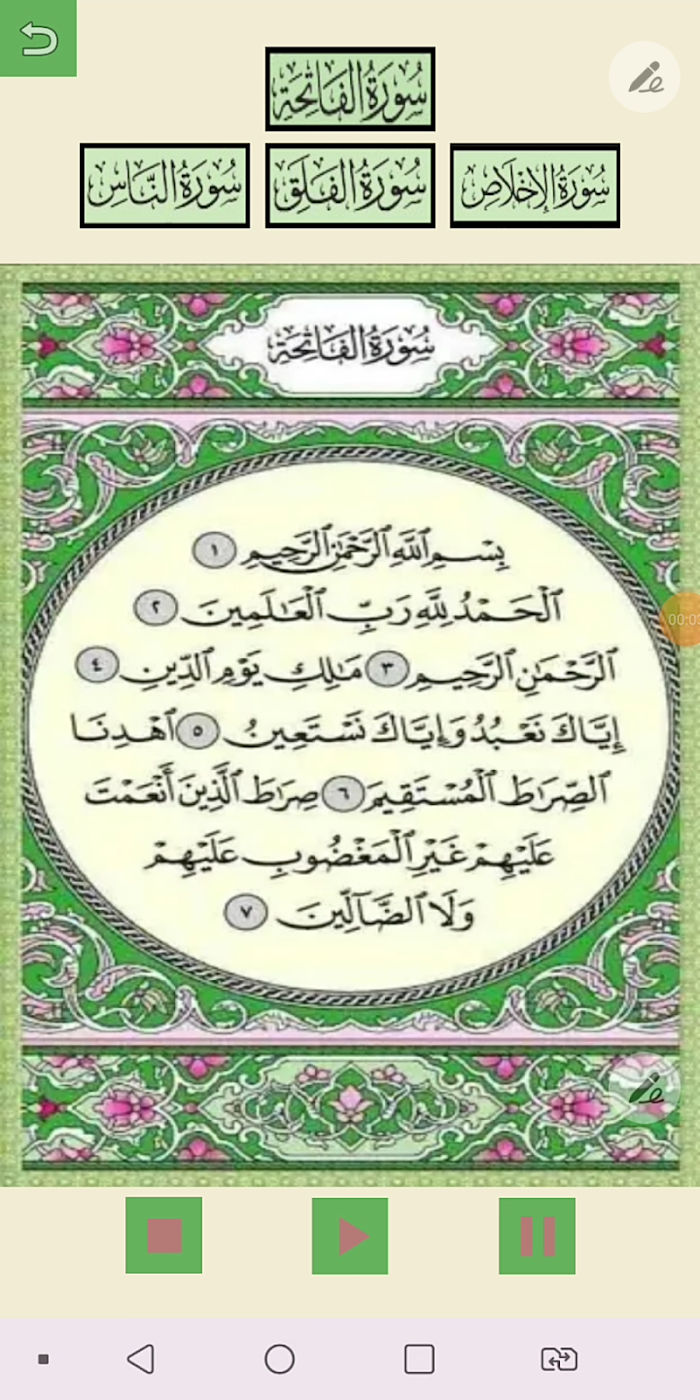 سُورَةُ الفَاتِحَةِ
سُورَةُ الإِخْلَاصِ
سُورَةُ الفَلَقِ
سُورَةُ النَّاسِ
سُورَةُ الفَاتِحَةِ
بِسْمِ ٱللَّهِ ٱلرَّحْمَٰنِ ٱلرَّحِيمِ ١
ٱلْحَمْدُ لِلَّهِ رَبِّ ٱلْعَٰلَمِينَ ٢
ٱلرَّحْمَٰنِ ٱلرَّحِيمِ ٣ مَٰلِكِ يَوْمِ ٱلدِّينِ ٤
إِيَّاكَ نَعْبُدُ وَإِيَّاكَ نَسْتَعِينُ ٥ ٱهْدِنَا
ٱلصِّرَٰطَ ٱلْمُسْتَقِيمَ ٦ صِرَٰطَ ٱلَّذِينَ أَنْعَمْتَ
عَلَيْهِمْ غَيْرِ ٱلْمَغْضُوبِ عَلَيْهِمْ
وَلَا ٱلضَّآلِّينَ ٧